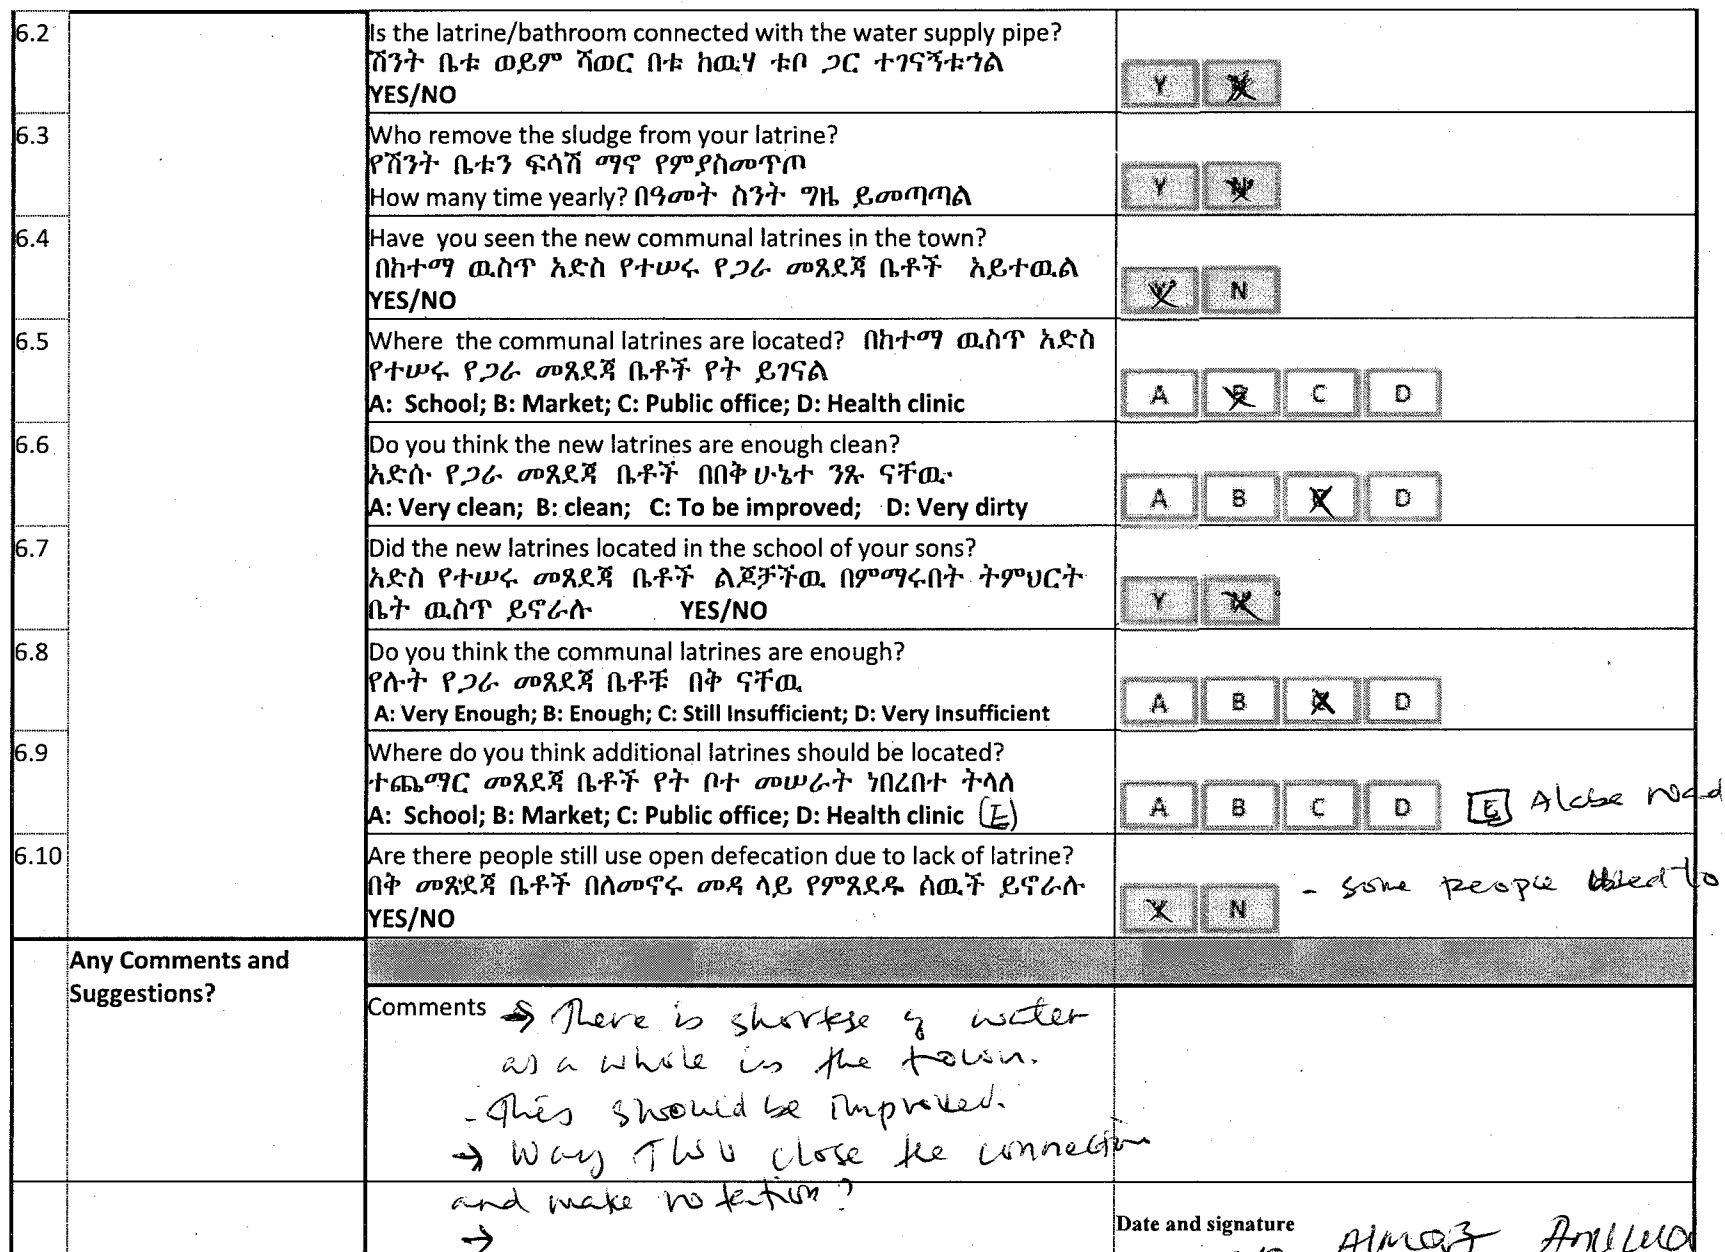 6.2 Is the latrine/bathroom connected with the water supply pipe?
ሽንት ቤቱ ወይም ሻወር በቱ ከዉሃ ቱቦ ጋር ተገናኝቱኀል
YES/NO Y N
6.3 Who remove the sludge from your latrine?
የሽንት ቤቱን ፍሳሽ ማኖ የምያስመጥጦ
How many time yearly? በዓመት ስንት ግዜ ይመጣጣል Y N
6.4 Have you seen the new communal latrines in the town?
በከተማ ዉስጥ አድስ የተሠሩ የጋራ መጸደጃ ቤቶች አይተዉል
YES/NO Y N
6.5 Where the communal latrines are located? በከተማ ዉስጥ አድስ
የተሠሩ የጋራ መጸደጃ ቤቶች የት ይገናል
A: School; B: Market; C: Public office; D: Health clinic A B C D
6.6 Do you think the new latrines are enough clean?
አድሱ የጋራ መጸደጃ ቤቶች በበቅ ሁኔተ ንጹ ናቸዉ
A: Very clean; B: clean; C: To be improved; D: Very dirty A B C D
6.7 Did the new latrines located in the school of your sons?
አድስ የተሠሩ መጸደጃ ቤቶች ልጆቻችዉ በምማሩበት ትምህርት
ቤት ዉስጥ ይኖራሉ YES/NO Y N
6.8 Do you think the communal latrines are enough?
የሉት የጋራ መጸደጃ ቤቶቹ በቅ ናቸዉ
A: Very Enough; B: Enough; C: Still Insufficient; D: Very Insufficient A B C D
6.9 Where do you think additional latrines should be located?
ተጨማር መጸደጃ ቤቶች የት ቦተ መሠራት ነበረበተ ትላለ
A: School; B: Market; C: Public office; D: Health clinic E A B C D E road
6.10 Are there people still use open defecation due to lack of latrine?
በቅ መጸደጃ ቤቶች በለመኖሩ መዳ ላይ የምጸደዱ ሰዉች ይኖራሉ - some people used to
YES/NO Y N
Any Comments and
Suggestions?
Comments → There is shortge of water
as a whole in the town.
- This should be improved.
→ Way TWU close the connection
and make
→
Date and signature Almaz